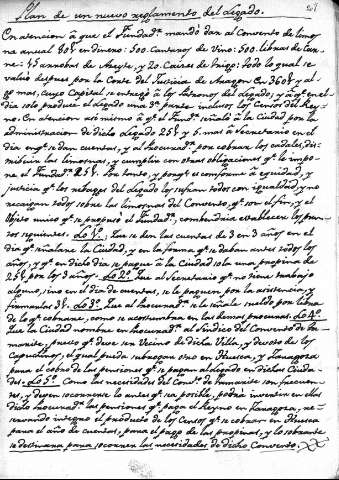 Plan de un nuevo reglamento del Legado.
En atencion à que el Fundadr. mandó dar al Convento de limos-
na anual 90 en dinero: 500. Cantaros de Vino: 500. libras de Car-
ne: 45 arrobas de Azeyte, y 20. Caices de trigo: todo lo qual se
valuó despues por la Corte del Justicia de Aragon en 360 y al-
go mas, cuyo Capital se entregó à los Patronos del Legado; y à qe. en el
dia solo produce el legado una 3a. parte inclusos los Censos del Rey-
no. En atencion asi mismo à qe. el Fundr. señaló à la Ciudad por la
administracion de dicho Legado 25 y 5. mas à Secretario en el
dia en qe. se dan cuentas, y al Procuradr. por cobrar los caudales, dis-
tribuir las limosnas, y cumplir con otras obligaciones qe. le impo-
ne el Fundadr. 25. Por tanto, y porqe. es conforme à equidad, y
justicia qe. los rebaxes del Legado los sufran todos con igualdad, y no
recaigan todos sobre las limosnas del Convento, qe. son el fin, y el
Objeto unico qe. se propuso el Fundadr., combendria establecer los pun-
tos siguientes. Lo 1o. Que se den las cuentas de 3 en 3 años en el
dia qe. señalare la Ciudad, y en la forma qe. se daban antes todos los
años, y qe. en dicho dia se pague à la Ciudad sola una propina de
25 por los 3 años. Lo 2o. Que al Secretario qe. no tiene trabajo
alguno, sino en el dia de cuentas, se le paguen por la asistencia, y
firmarlas 3. Lo 3o. Que al Procuradr. se le señale sueldo por libra
de lo qe. cobrare, como se acostumbra en las demas procuras. Lo 4o.
Que la Ciudad nombre en Procuradr. al Sindico del Convento de Ta-
marite, puesto qe. deve ser Vecino de dicha Villa, y devoto de los
Capuchinos, el qual pueda subrogar otro en Huesca, y Zaragoza
para el cobro de las pensiones qe. se pagan al Legado en dichas Ciuda-
des. Lo 5o. Como las necesidades del Convto. de Tamarite son frecuen-
tes, y deven socorrerse lo antes qe. sea posible, podria invertir en ellas
dicho Procuradr. las pensiones qe. paga el Reyno en Zaragoza, re-
servando integro el producto de los Censos qe. se cobran en Huesca
para el año de cuentas, para el pago de las propinas, y lo sobrante
se destinara para socorrer las necesidades de dicho Convento.